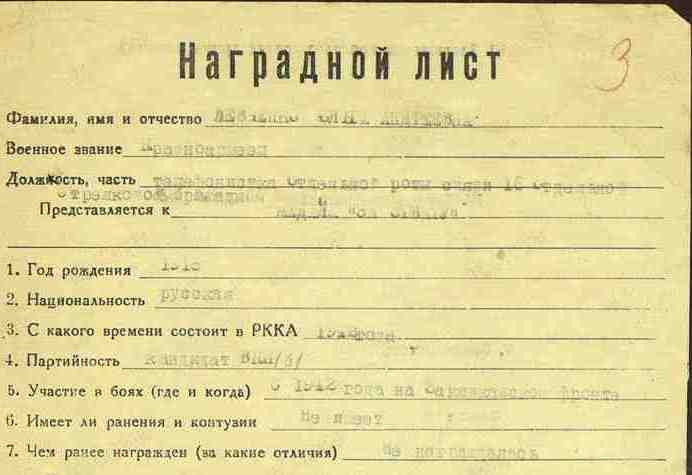 Наградной лист 3
Фамилия, имя и отчество АНДРЕЕВНА
Военное звание Красноармеец
Должность, часть телефонистка отдельной роты связи 16 отдельной
стрелковой бригады
Представляется к МЕДАЛИ "ЗА ОТВАГУ"
1. Год рождения
2. Национальность русская
3. С какого времени состоит в РККА года
4. Партийность кандидат ВКП/б/
5. Участие в боях (где и когда) с 1942 года на фронте
6. Имеет ли ранения и контузии Не имеет
7. Чем ранее награжден (за какие отличия) Не награждалась